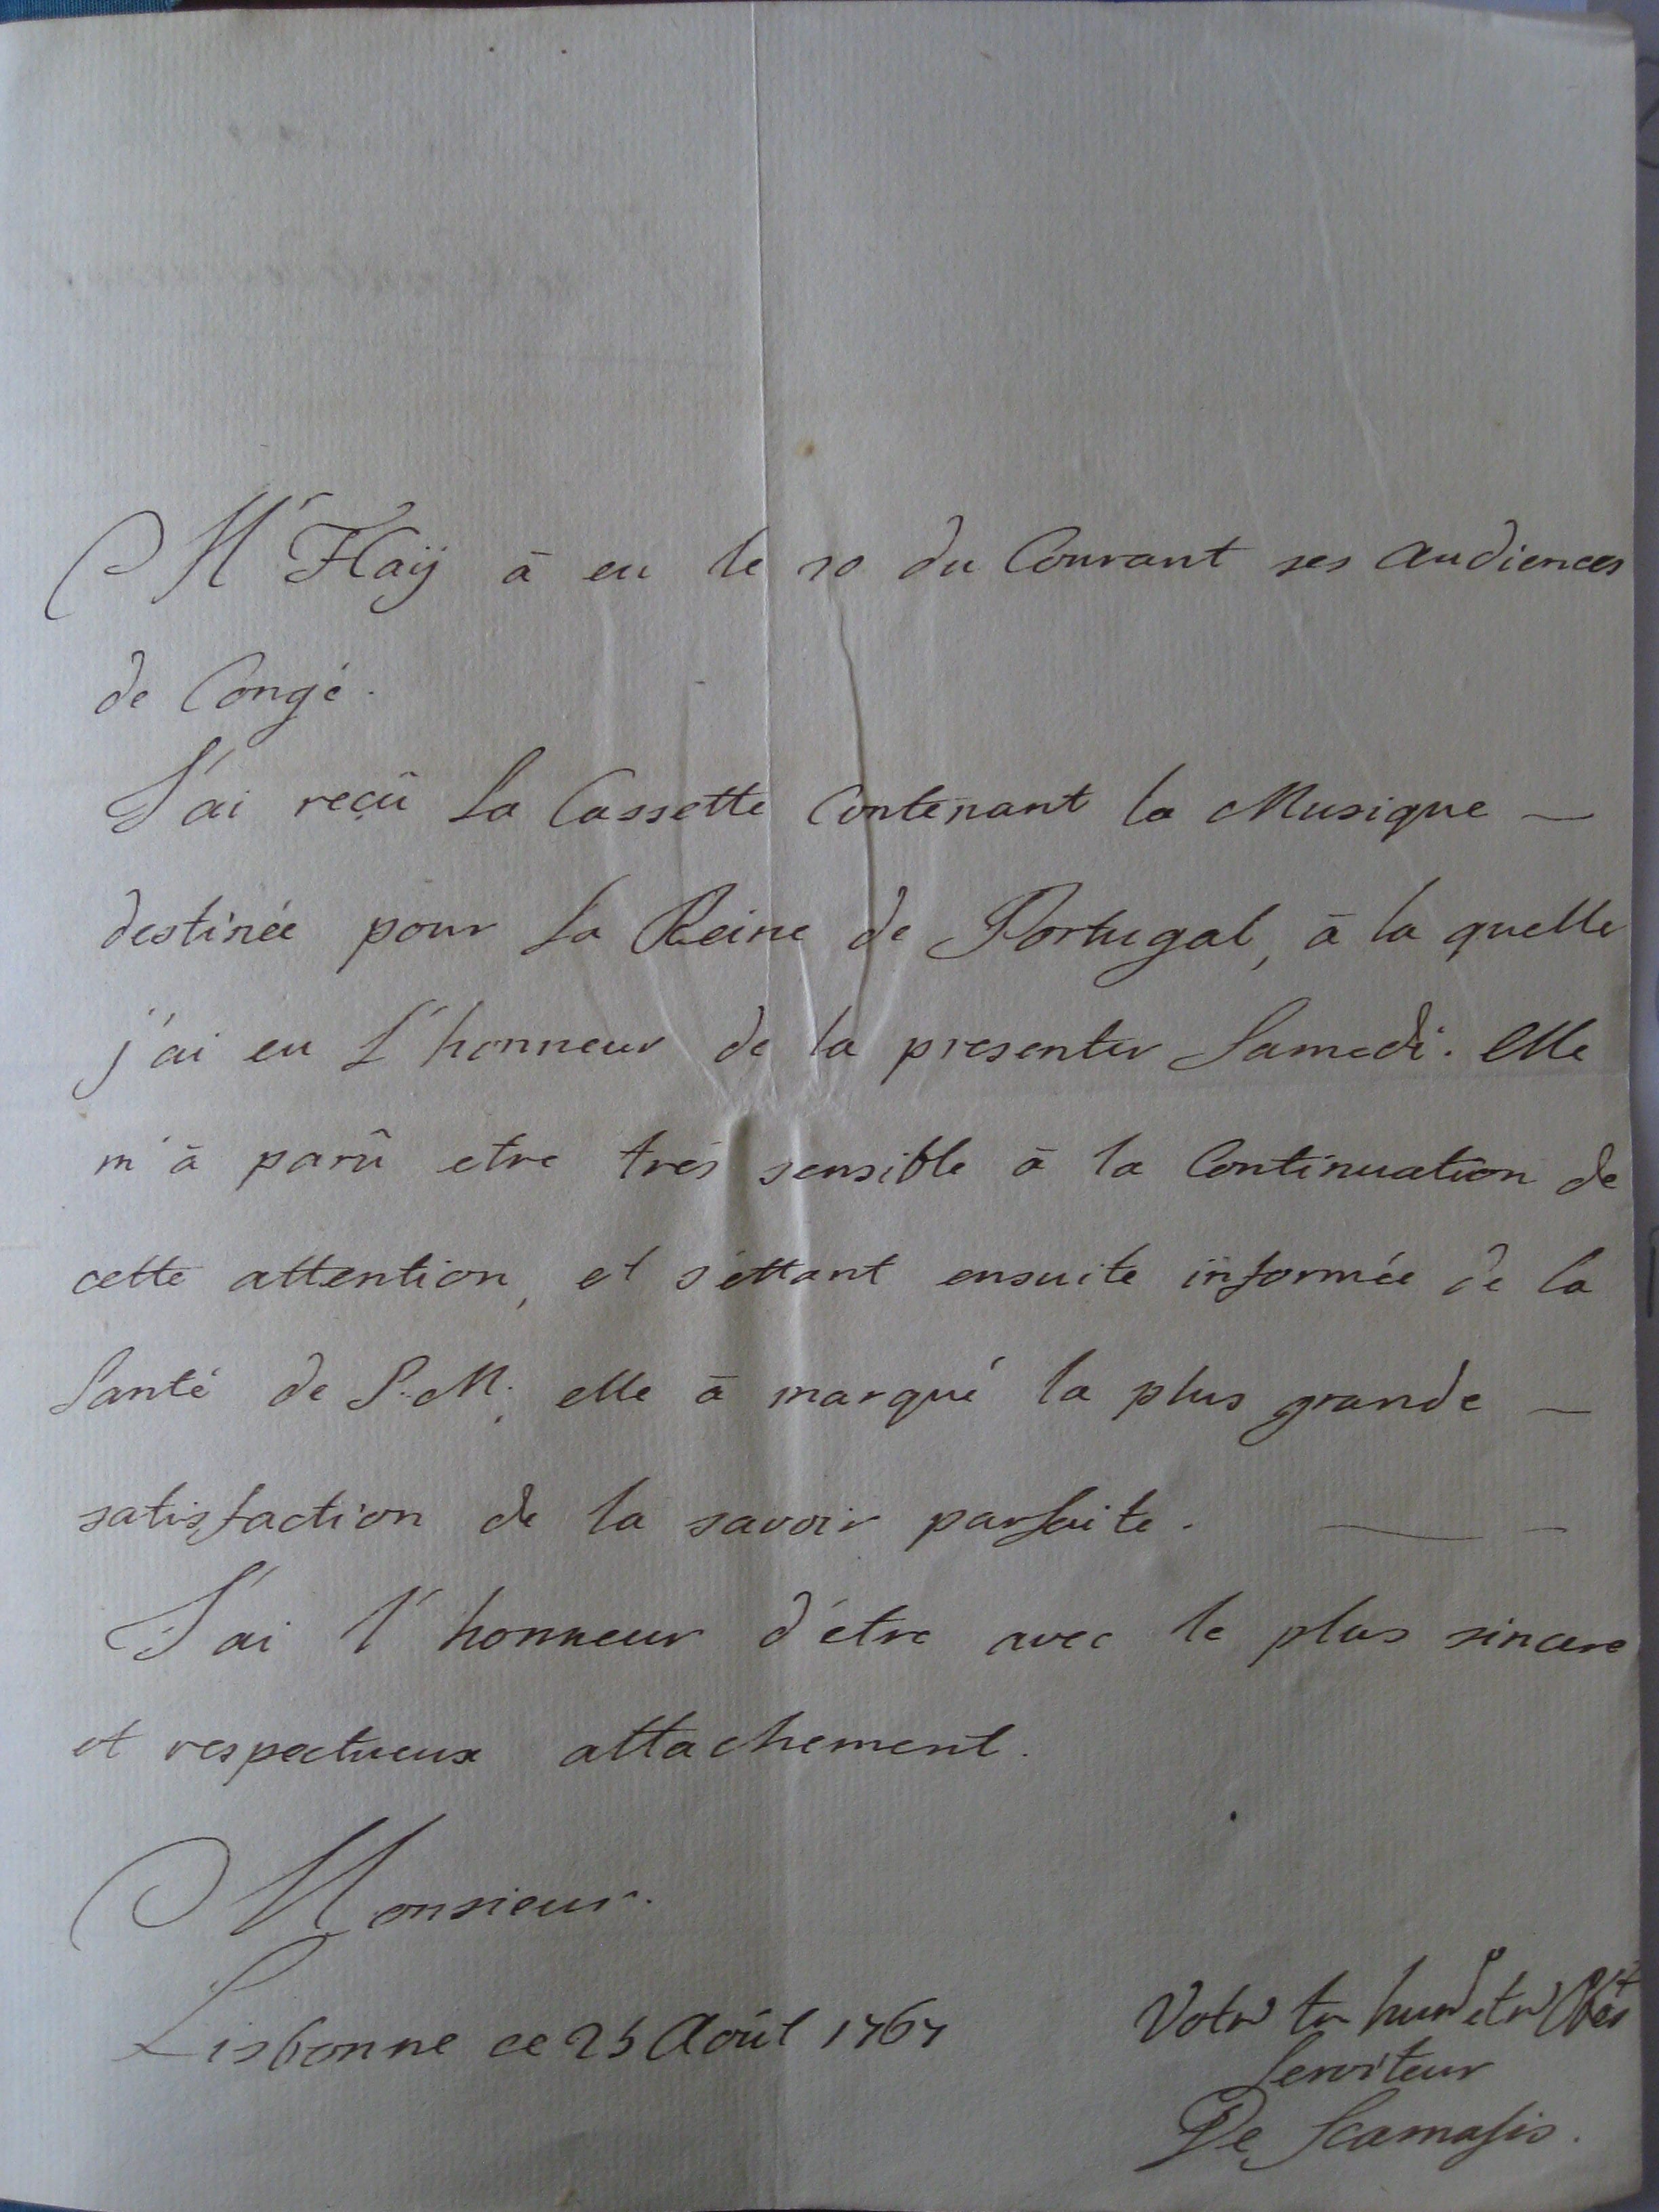 Mr Haÿ à eu le 10 du Courant ses audiences
de Congé.
J'ai reçû La Cassette Contenant la Musique —
destinée pour La Reine de Portugal, à la quelle
j'ai eu L'honneur de la presenter Samedi. Elle
m'à parû etre trés sensible à la Continuation de
cette attention, et s'ettant ensuite informée de la
Santé de S.M. elle à marqué la plus grande —
satisfaction de la savoir parfaite. —
J'ai l'honneur d'étre avec le plus sincere
et respectueux attachement.
Monsieur.
Lisbonne ce 25 Août 1767
Votre
Serviteur
De Scamasis.